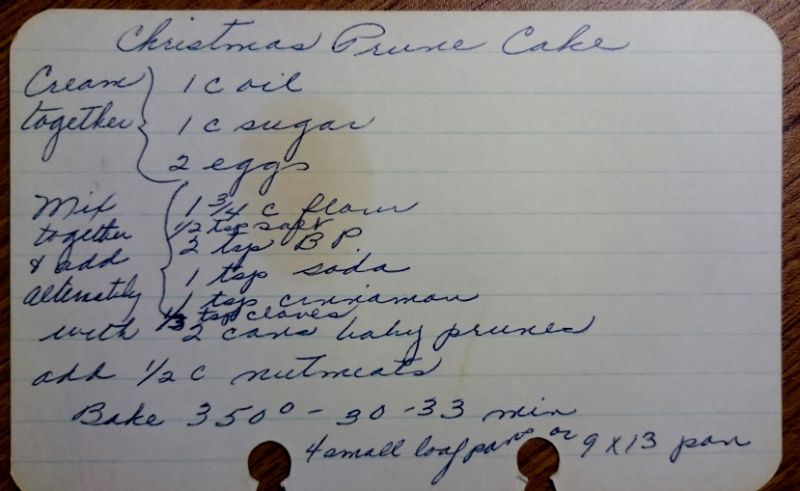 Christmas Prune Cake
Cream together
1 c oil
1 c sugar
2 eggs
Mix together & add alternately
1 3/4 c flour
1/2 tsp salt
2 tsp B P
1 tsp soda
1 tsp cinnamon
1/3 tsp cloves
with 2 cans baby prunes
add 1/2 c nutmeats
Bake 350° - 30 - 33 min
4 small loaf pans or 9 x 13 pan